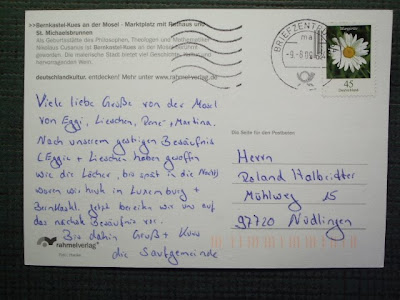 >>Bernkastel-Kues an der Mosel - Marktplatz mit Rathaus und
St. Michaelsbrunnen
Als Geburtsstätte des Philosophen, Theologen und Mathematikers
Nikolaus Cusanus ist Bernkastel-Kues an der Moselberühmt
geworden. Die malerische Stadt bietet viel Geschichte, Kultur und
hervorragenden Wein.
deutschlandkultur. entdecken! Mehr unter www.rahmelverlag.de
BRIEFZENTR
45
Deutschland
Viele liebe Grüße von der Mosel
von Eggi, Lieschen, René + Martina.
Nach unserem gestrigen Besäufnis
(Eggi + Lieschen haben gesoffen
wie die Löcher, bis spät in die Nacht)
waren wir heute in Luxemburg +
Bernkastel. Jetzt bereiten wir uns auf
das nächste Besäufnis vor.
Bis dahin Gruß + Kuss
die Saufgemeinde
Die Seite für den Postboten
Herrn
Roland Halbritter
Mühlweg 15
97720 Nüdlingen
rahmelverlag